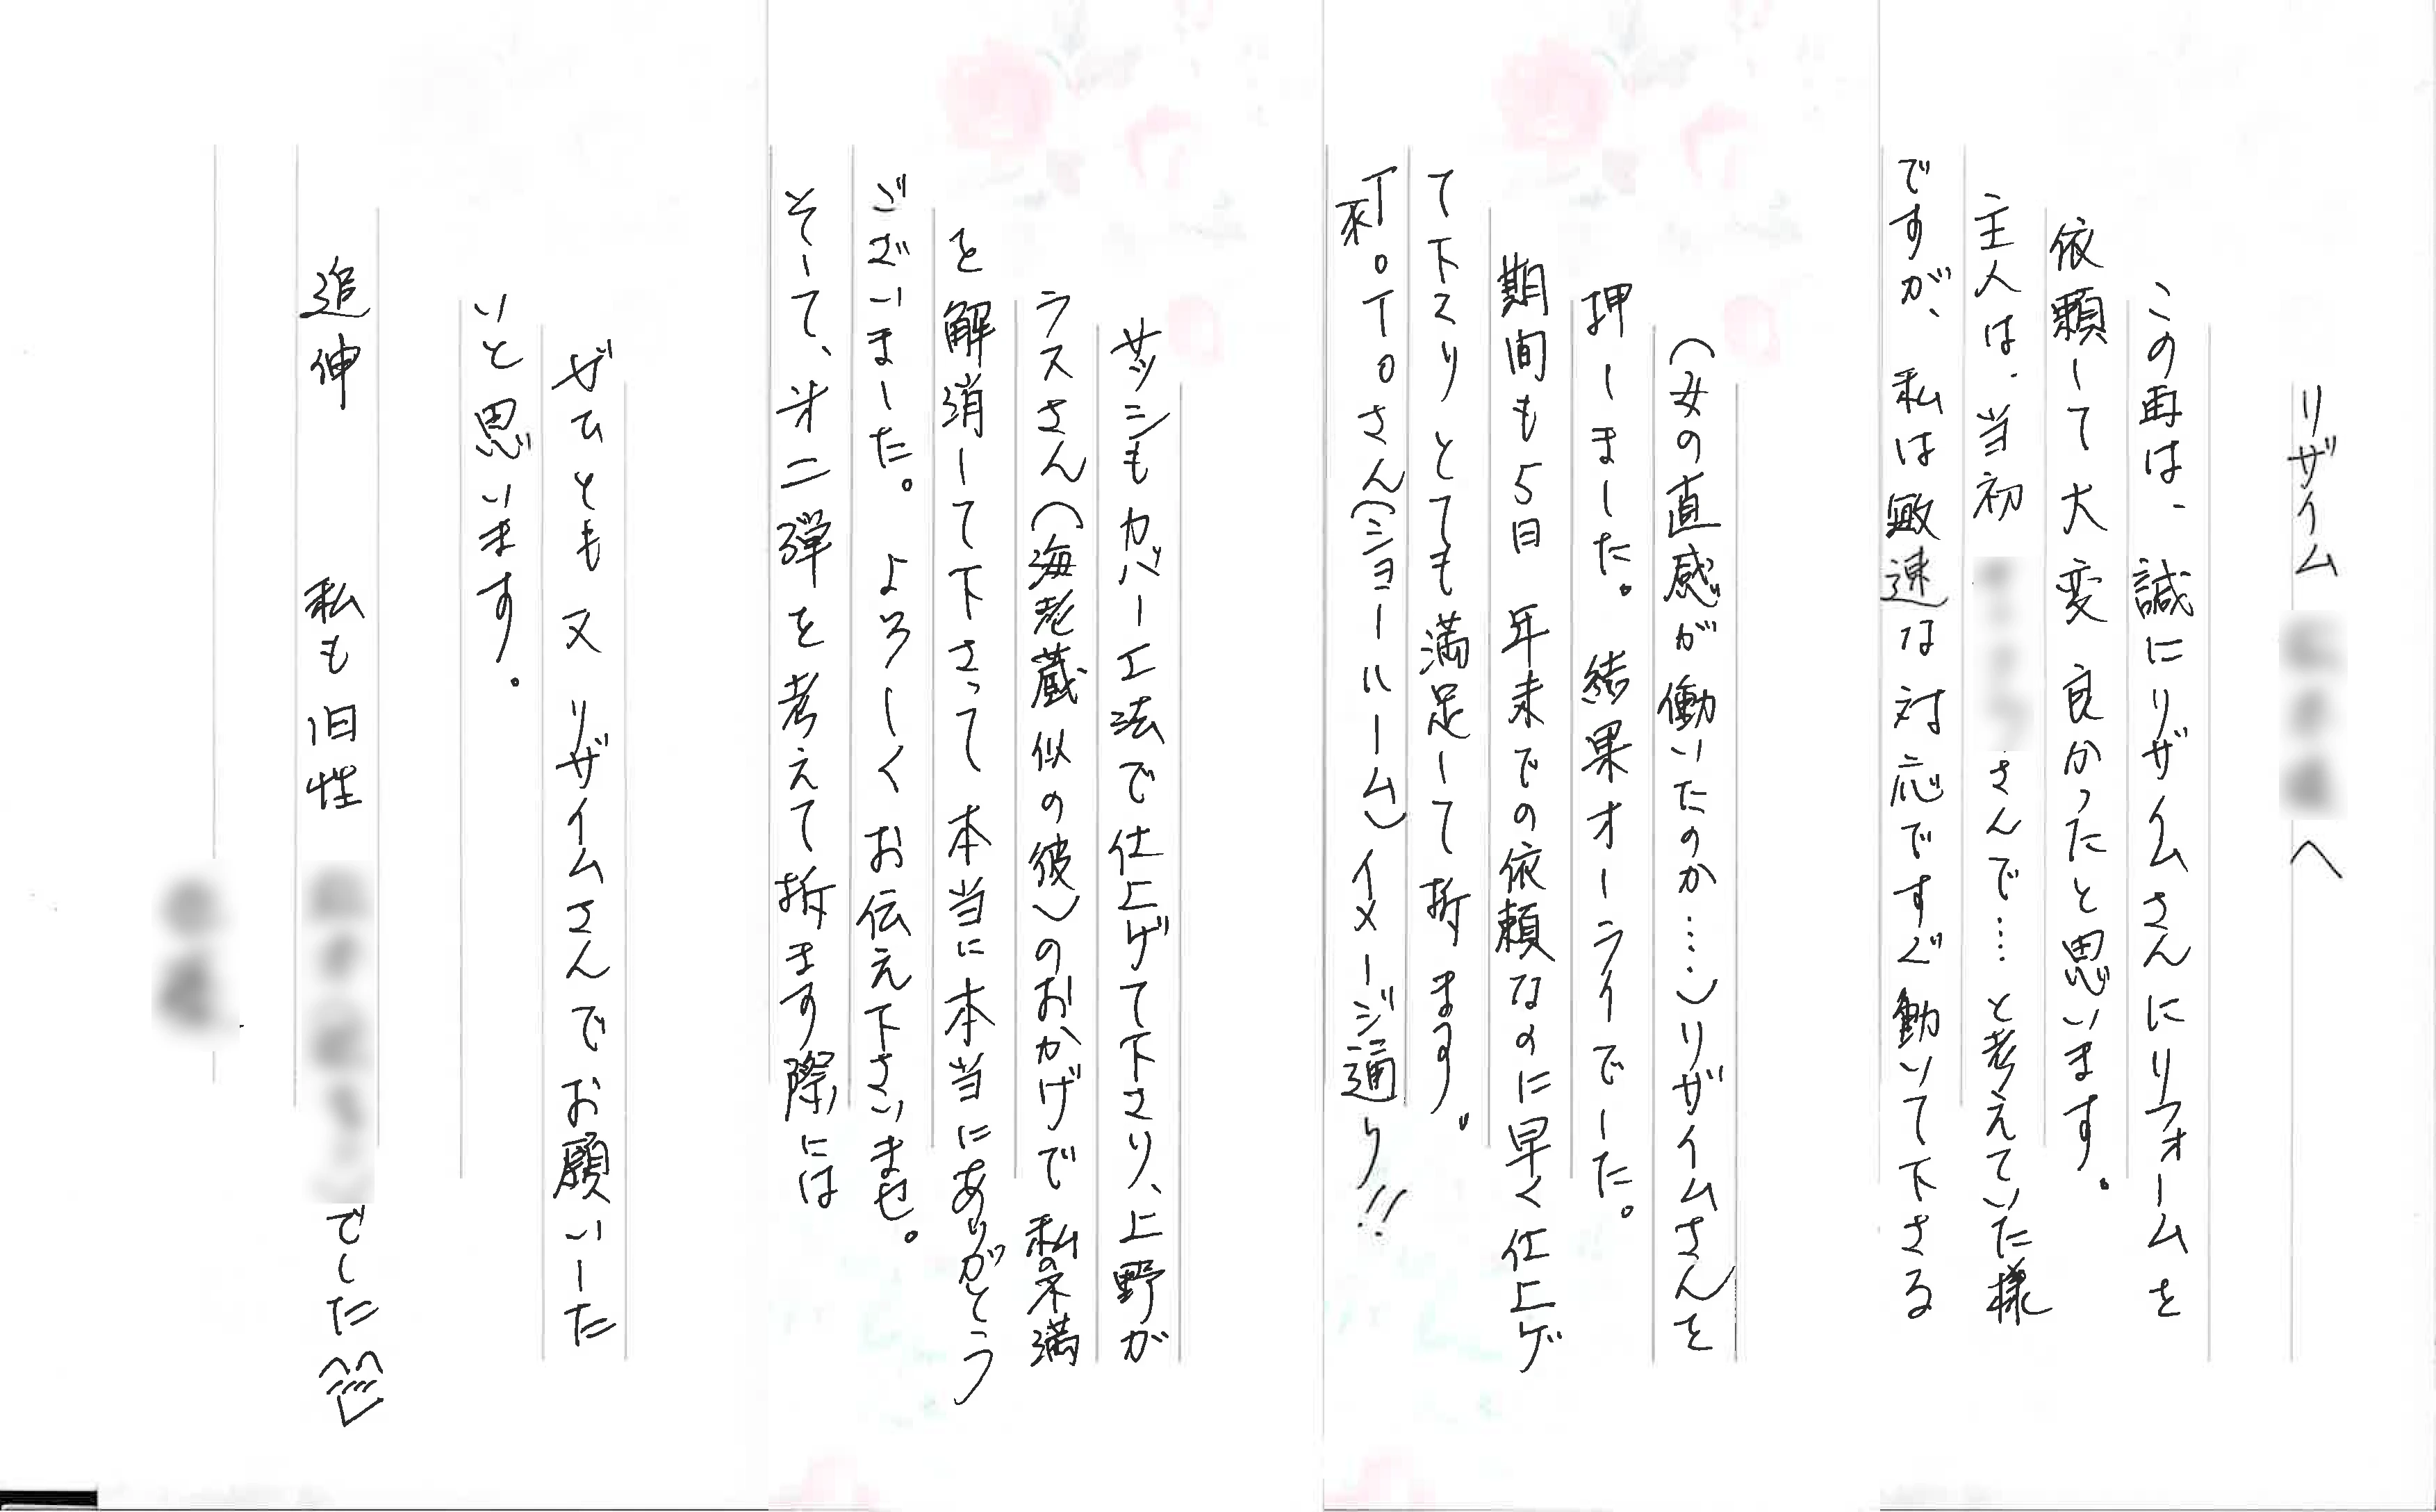 リザイム
へ
この再は、誠にリザイムさんにリフォームを
依頼して大変良かったと思います。
主人は、当初
さんで……と考えていた様
ですが、私は敏速な対応ですぐ動いて下さる
(女の直感が働いたのか……)リザイムさんを
押しました。結果オーライでした。
期間も5日 年末での依頼なのに早く仕上げ
て下さりとても満足して折ます。
T.O.さん(ショールーム)イメージ通り!!
サッシもカバー工法で仕上げて下さり、上野が
ラスさん(海老蔵似の彼)のおかげで私の不満
を解消して下さって本当に本当にありがとう
ございました。よろしくお伝え下さいませ。
そして、才二弾を考えて折ます際には
ぜひとも又 リザイムさんでお願いした
いと思います。
追伸 私も旧性
でした